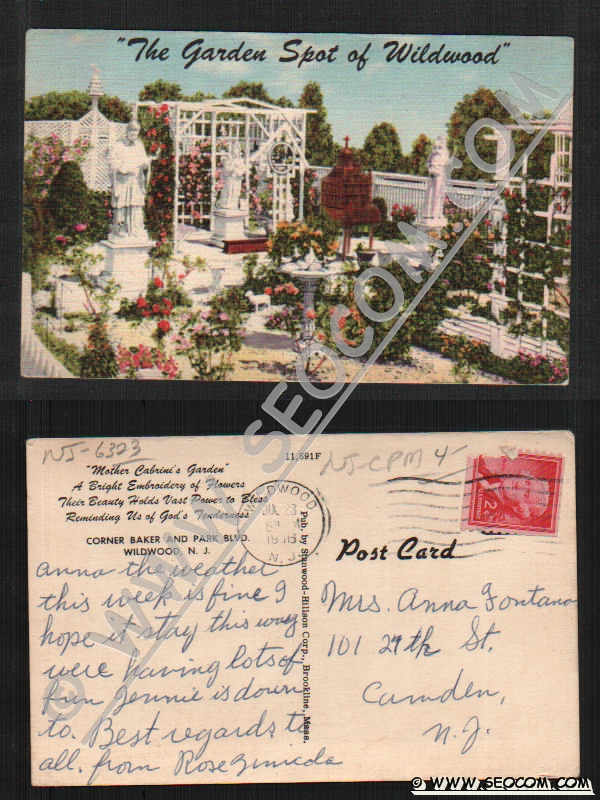 "The Garden Spot of Wildwood"
NJ-6323
11,691F
NJ-CPM 4-
"Mother Cabrini's Garden"
A Bright Embroidery of Flowers
Their Beauty Holds Vast Power to Bless
Reminding Us of God's Tenderness
CORNER BAKER AND PARK BLVD.
WILDWOOD, N. J.
WILDWOOD
23
N. J.
2¢
Post Card
Pub. by Stanwood-Hillson Corp., Brookline, Mass.
Anna the weather
this week is fine I
hope it stay this way
were having lots of
fun Jennie is down
to. Best regards to
all. from Rose
Mrs. Anna Fontana
101 27th St.
Camden,
N.J.
© WWW.SEOCOM.COM
© WWW.SEOCOM.COM